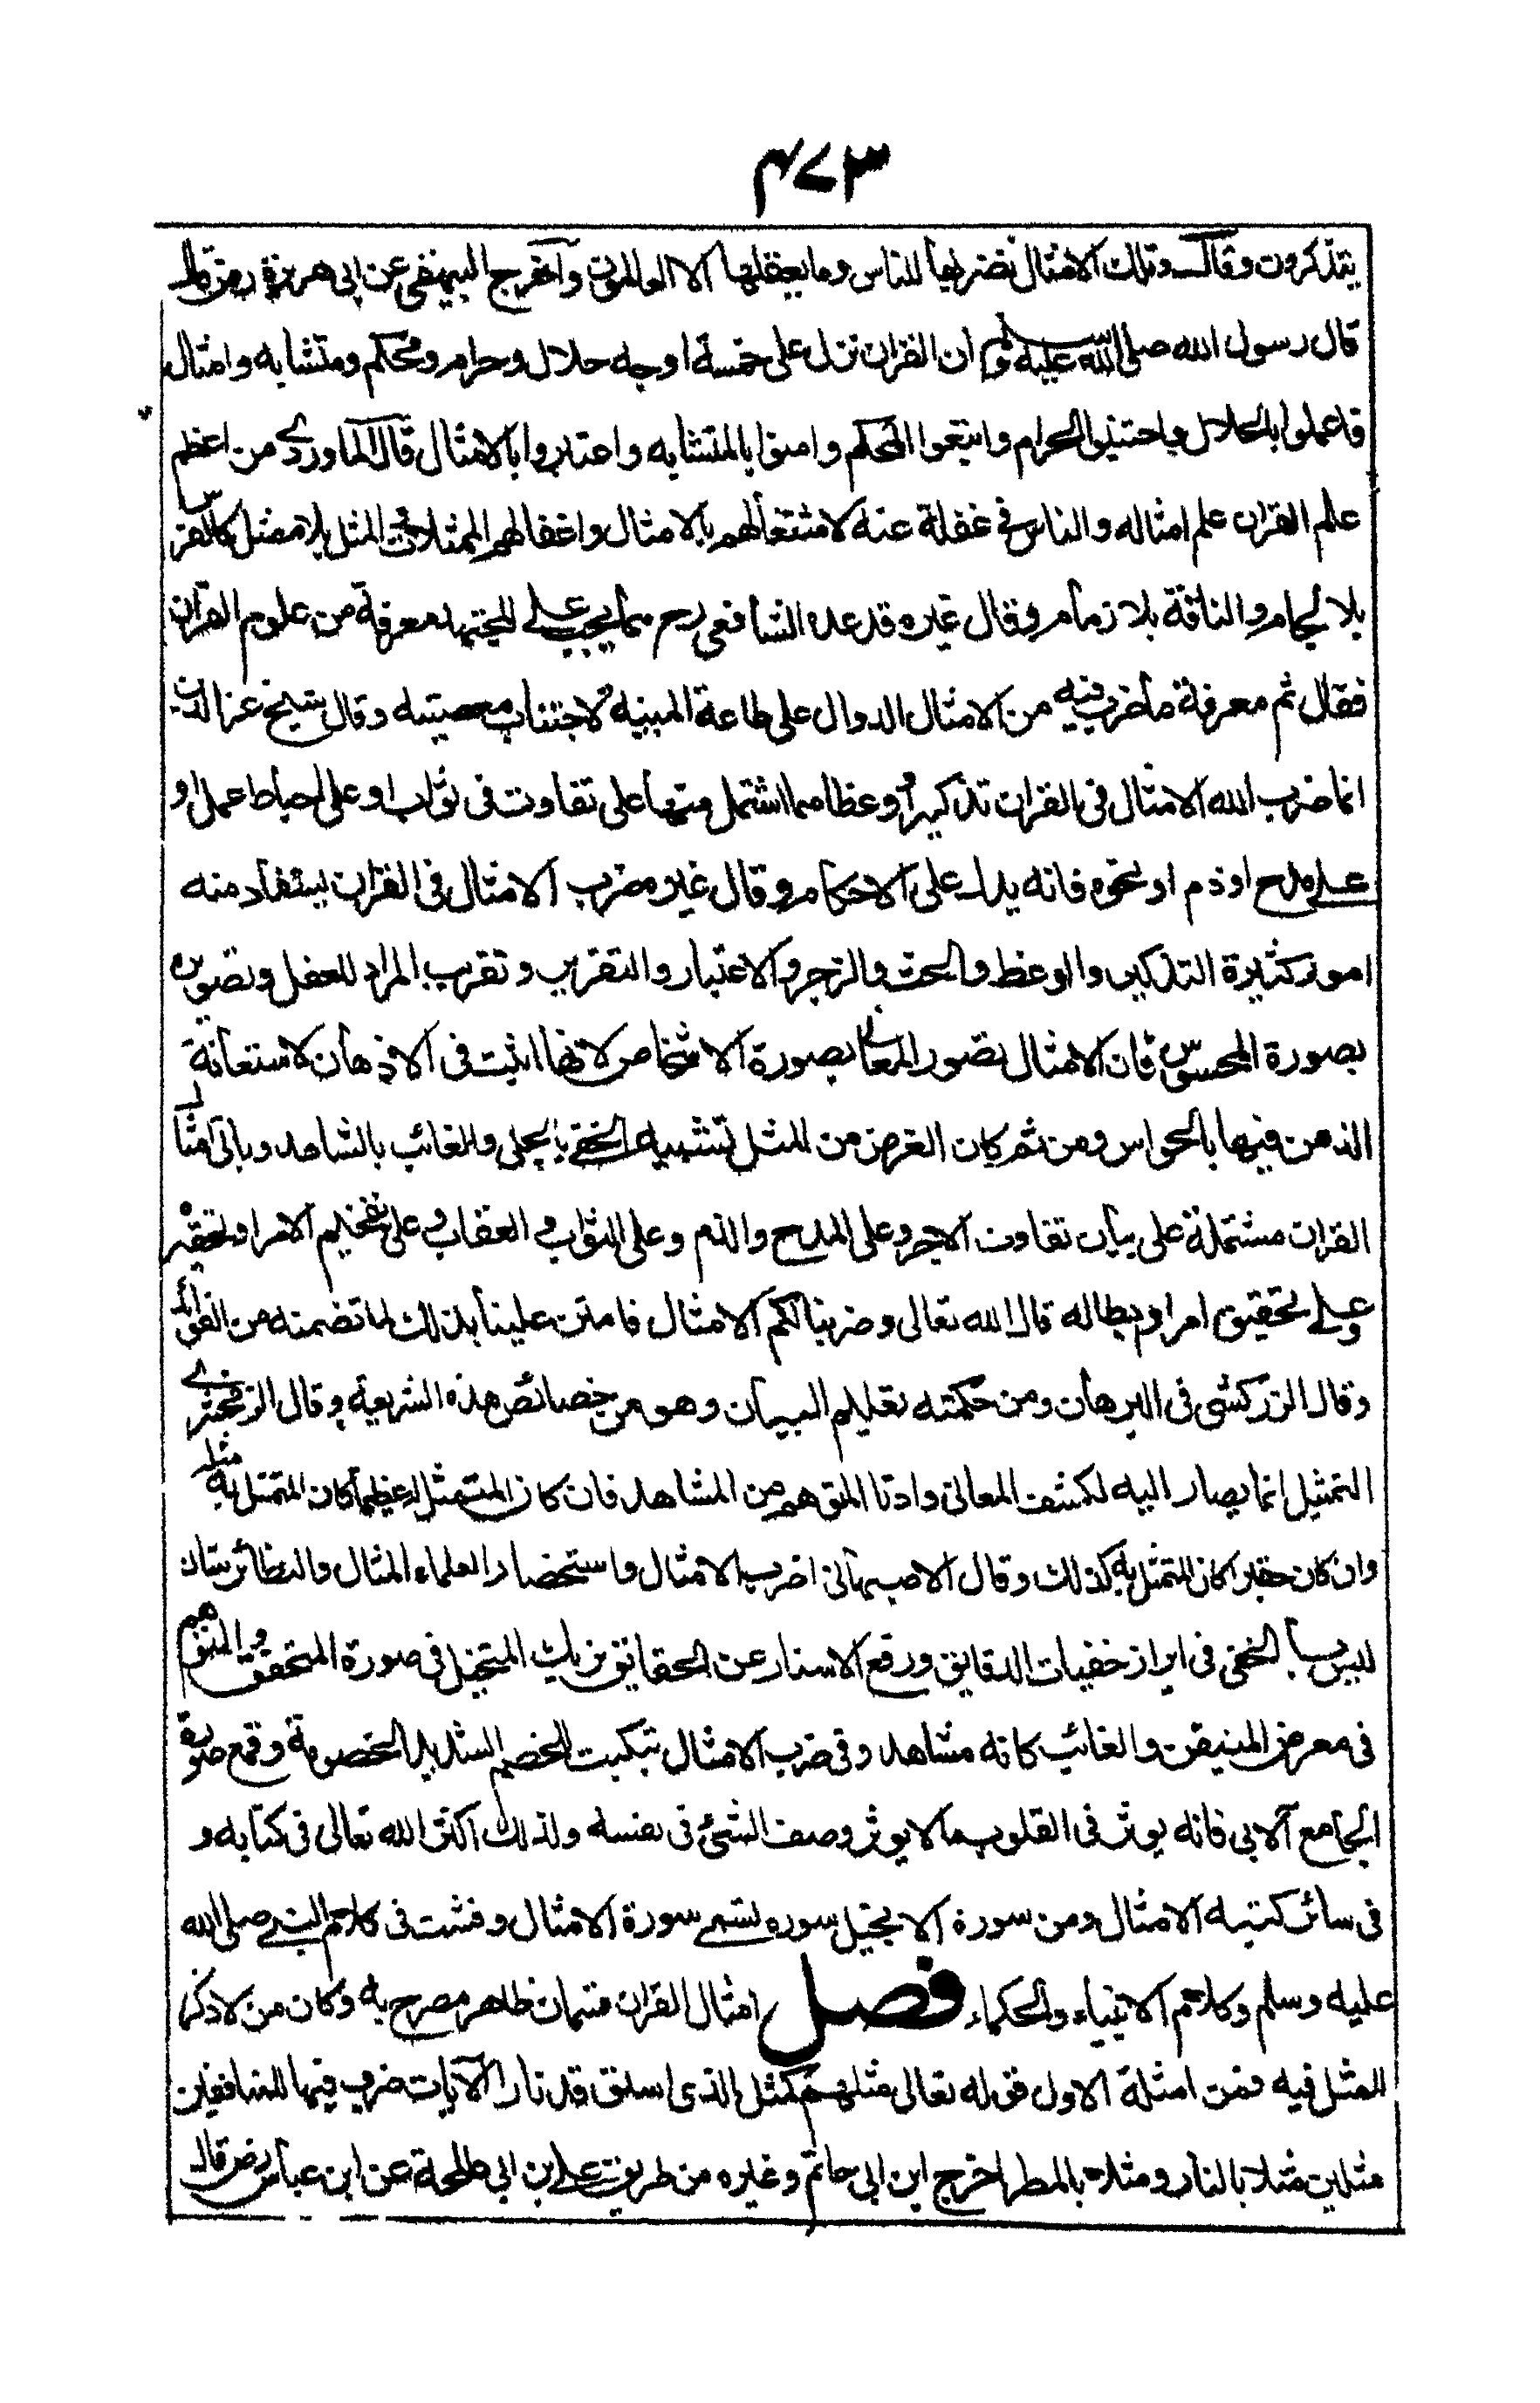 ٤٧٣
يتذكرون وقال وتلك الامثال نضربها للناس وما يعقلها الا العالمون وآخرج البيهقي عن ابي هريرة رض قال
قال رسول الله صلى الله عليه وسلم ان القران نزل على خمسة اوجه حلال وحرام ومحكم ومتشابه وامثال
فاعملوا بالحلال واجتنبوا الحرام واتبعوا المحكم وامنوا بالمتشابه واعتبروا بالامثال قال الماوردي من اعظم
علم القران علم امثاله والناس في غفلة عنه لاشتغالهم بالامثال واغفالهم الممثلات والمثل بلا ممثل كالفرس
بلا لجام والناقة بلا زمام وقال غيره قد عده الشافعي رح مما يجب على المجتهد معرفة من علوم القران
فقال ثم معرفة ما ضرب فيه من الامثال الدوال على طاعة المبينة لاجتناب معصيته وقال شيخ عز الدين
انما ضرب الله الامثال في القران تذكيرا ووعظا مما اشتمل منها على تفاوت في ثواب او على احباط عمل او
على مدح او ذم او نحوه فانه يدل على الاحكام وقال غيره ضرب الامثال في القران يستفاد منه
امور كثيرة التذكير والوعظ والحث والزجر والاعتبار والتقرير وتقريب المراد للعقل وتصويره
بصورة المحسوس فان الامثال تصور المعاني بصورة الاشخاص لانها اثبت في الاذهان لاستعانة
الذهن فيها بالحواس ومن ثم كان الغرض من المثل تشبيه الخفي بالجلي والغائب بالشاهد وياتي امثال
القران مشتملة على بيان تفاوت الاجر وعلى المدح والذم وعلى الثواب والعقاب وعلى تفخيم الامر او تحقيره
وعلى تحقيق امر او ابطاله قال الله تعالى وضربنا لكم الامثال فامتن علينا بذلك لما تضمنه من الفوائد
وقال الزركشي في البرهان ومن حكمته تعليم البيان وهو من خصائص هذه الشريعة وقال الزمخشري
التمثيل انما يصار اليه لكشف المعاني وادنا المتوهم من المشاهد فان كان المتمثل له عظيما كان المتمثل به مثله
وان كان حقيرا كان المتمثل به كذلك وقال الاصبهاني اضرب الامثال واستحضار العلماء المثال والنظائر شان
ليس بالخفي في ابراز خفيات الدقايق ورفع الاستار عن الحقايق تريك المتخيل في صورة المتحقق والمتوهم
في معرض المتيقن والغائب كانه مشاهد وفي ضرب الامثال تبكيت الخصم الشديد الخصومة وقمع صورة
الجامع الابي فانه يوثر في القلوب ما لا يوثر وصف الشئ في نفسه ولذلك اكثر الله تعالى في كتابه و
في سائر كتبه الامثال ومن سورة الانجيل سوره تسمى سورة الامثال وفشت في كلام النبي صلى الله
عليه وسلم وكلام الانبياء والحكماء فصل امثال القران قسمان ظاهر مصرح به وكان من لا ذكر
للمثل فيه فمن امثلة الاول قوله تعالى مثلهم كمثل الذي استوقد نارا الآيات ضرب فيها للمنافقين
مثلين مثلا بالنار ومثلا بالمطر اخرج ابن ابي حاتم وغيره من طريق علي بن ابي طلحة عن ابن عباس رض قال